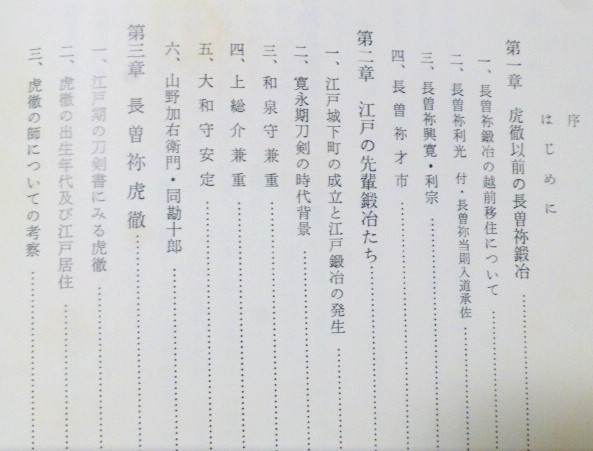 序
はじめに
第一章 虎徹以前の長曽祢鍛冶
一、長曽祢鍛冶の越前移住について
二、長曽祢利光 付・長曽祢当則入道承佐
三、長曽祢興寛・利宗
四、長曽祢才市
第二章 江戸の先輩鍛冶たち
一、江戸城下町の成立と江戸鍛冶の発生
二、寛永期刀剣の時代背景
三、和泉守兼重
四、上総介兼重
五、大和守安定
六、山野加右衛門・同勘十郎
第三章 長曽祢虎徹
一、江戸期の刀剣書にみる虎徹
二、虎徹の出生年代及び江戸居住
三、虎徹の師についての考察